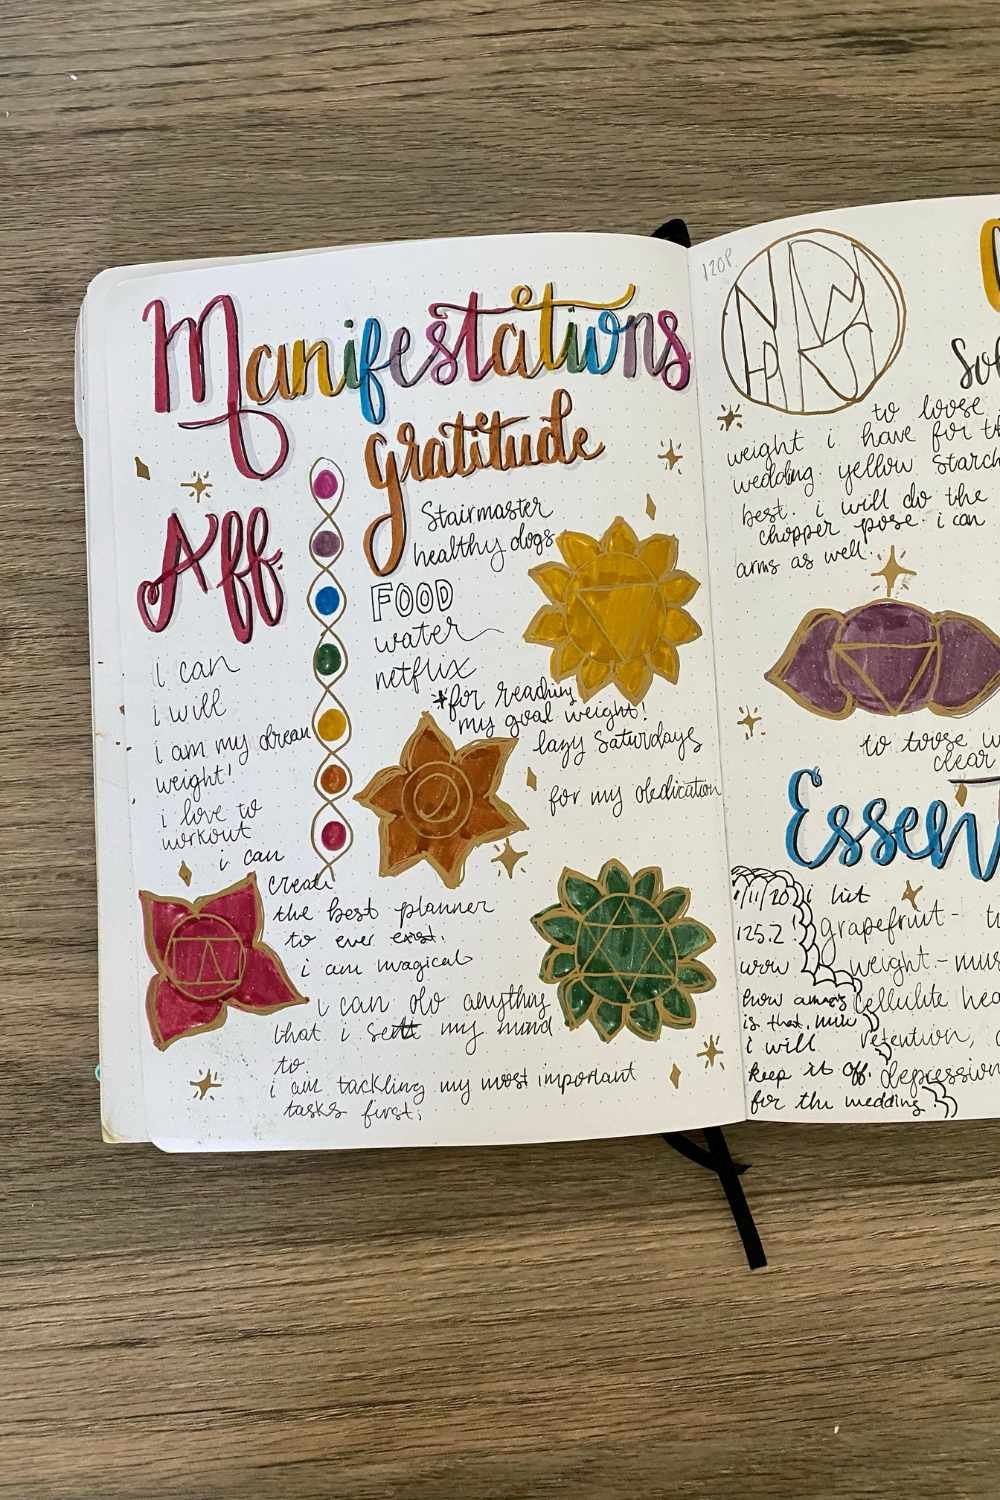 Manifestations
gratitude
Stairmaster
healthy dogs
FOOD
water
netflix
*for reaching
my goal weight!
lazy Saturdays
for my dedication
Aff.
i can
i will
i am my dream
weight!
i love to
workout
i can
create
the best planner
to ever exist.
i am magical
i can do anything
that i sett my mind
to.
i am tackling my most important
tasks first.
120P
to loose
weight i have for th
wedding. yellow starch
best. i will do the
chopper pose. i can
arms as well.
to loose w
clear
Essen
1/11/20
125.2!
wow
how amazing
is that. now
i will
keep it off.
for the wedding!
i hit
grapefruit-
weight-mus
cellulite hea
retention,
depression